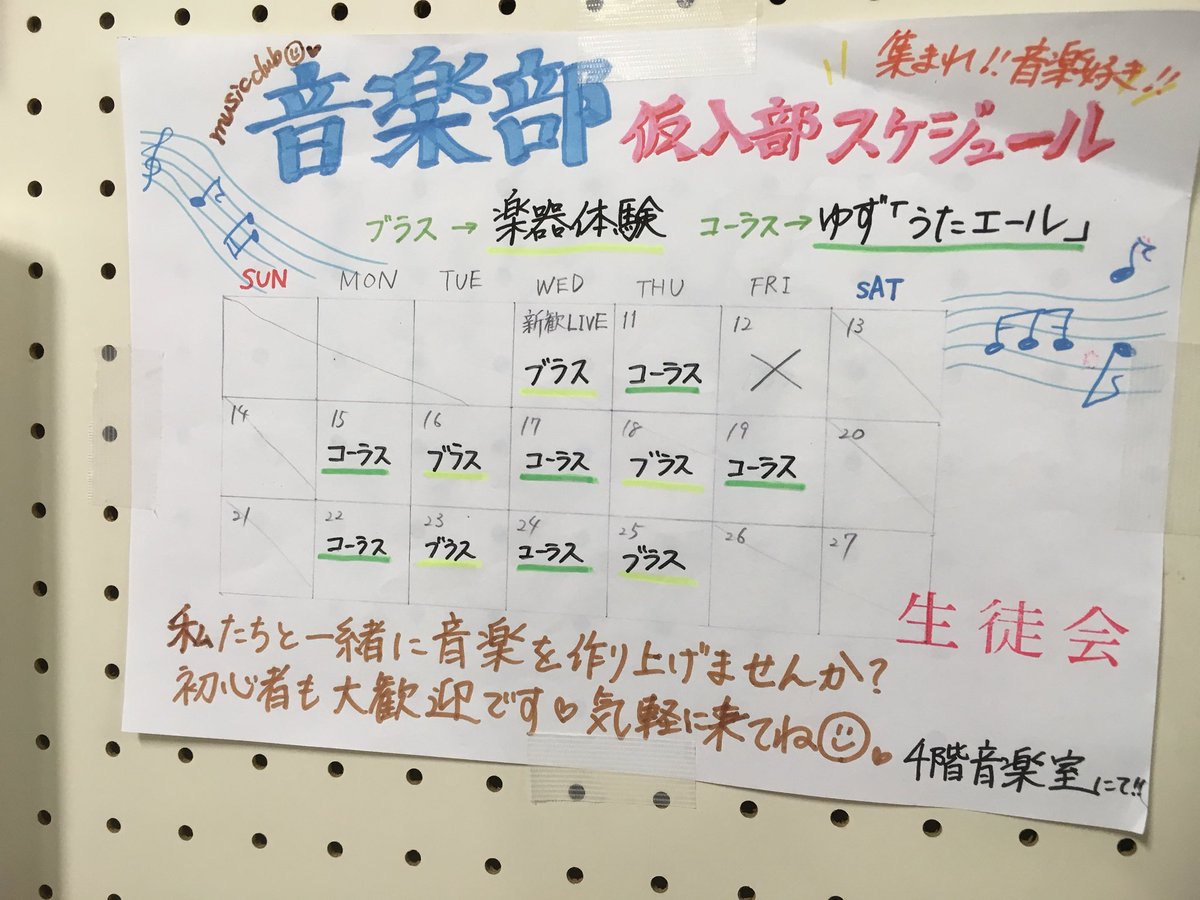 music club
音楽部
集まれ!!音楽好き!!
仮入部スケジュール
ブラス→楽器体験 コーラス→ゆず「うたエール」
SUN MON TUE WED THU FRI SAT
新歓LIVE 11 12 13
ブラス コーラス ×
14 15 16 17 18 19 20
コーラス ブラス コーラス ブラス コーラス
21 22 23 24 25 26 27
コーラス ブラス コーラス ブラス
生徒会
私たちと一緒に音楽を作り上げませんか?
初心者も大歓迎です♡気軽に来てね
4階音楽室にて!!